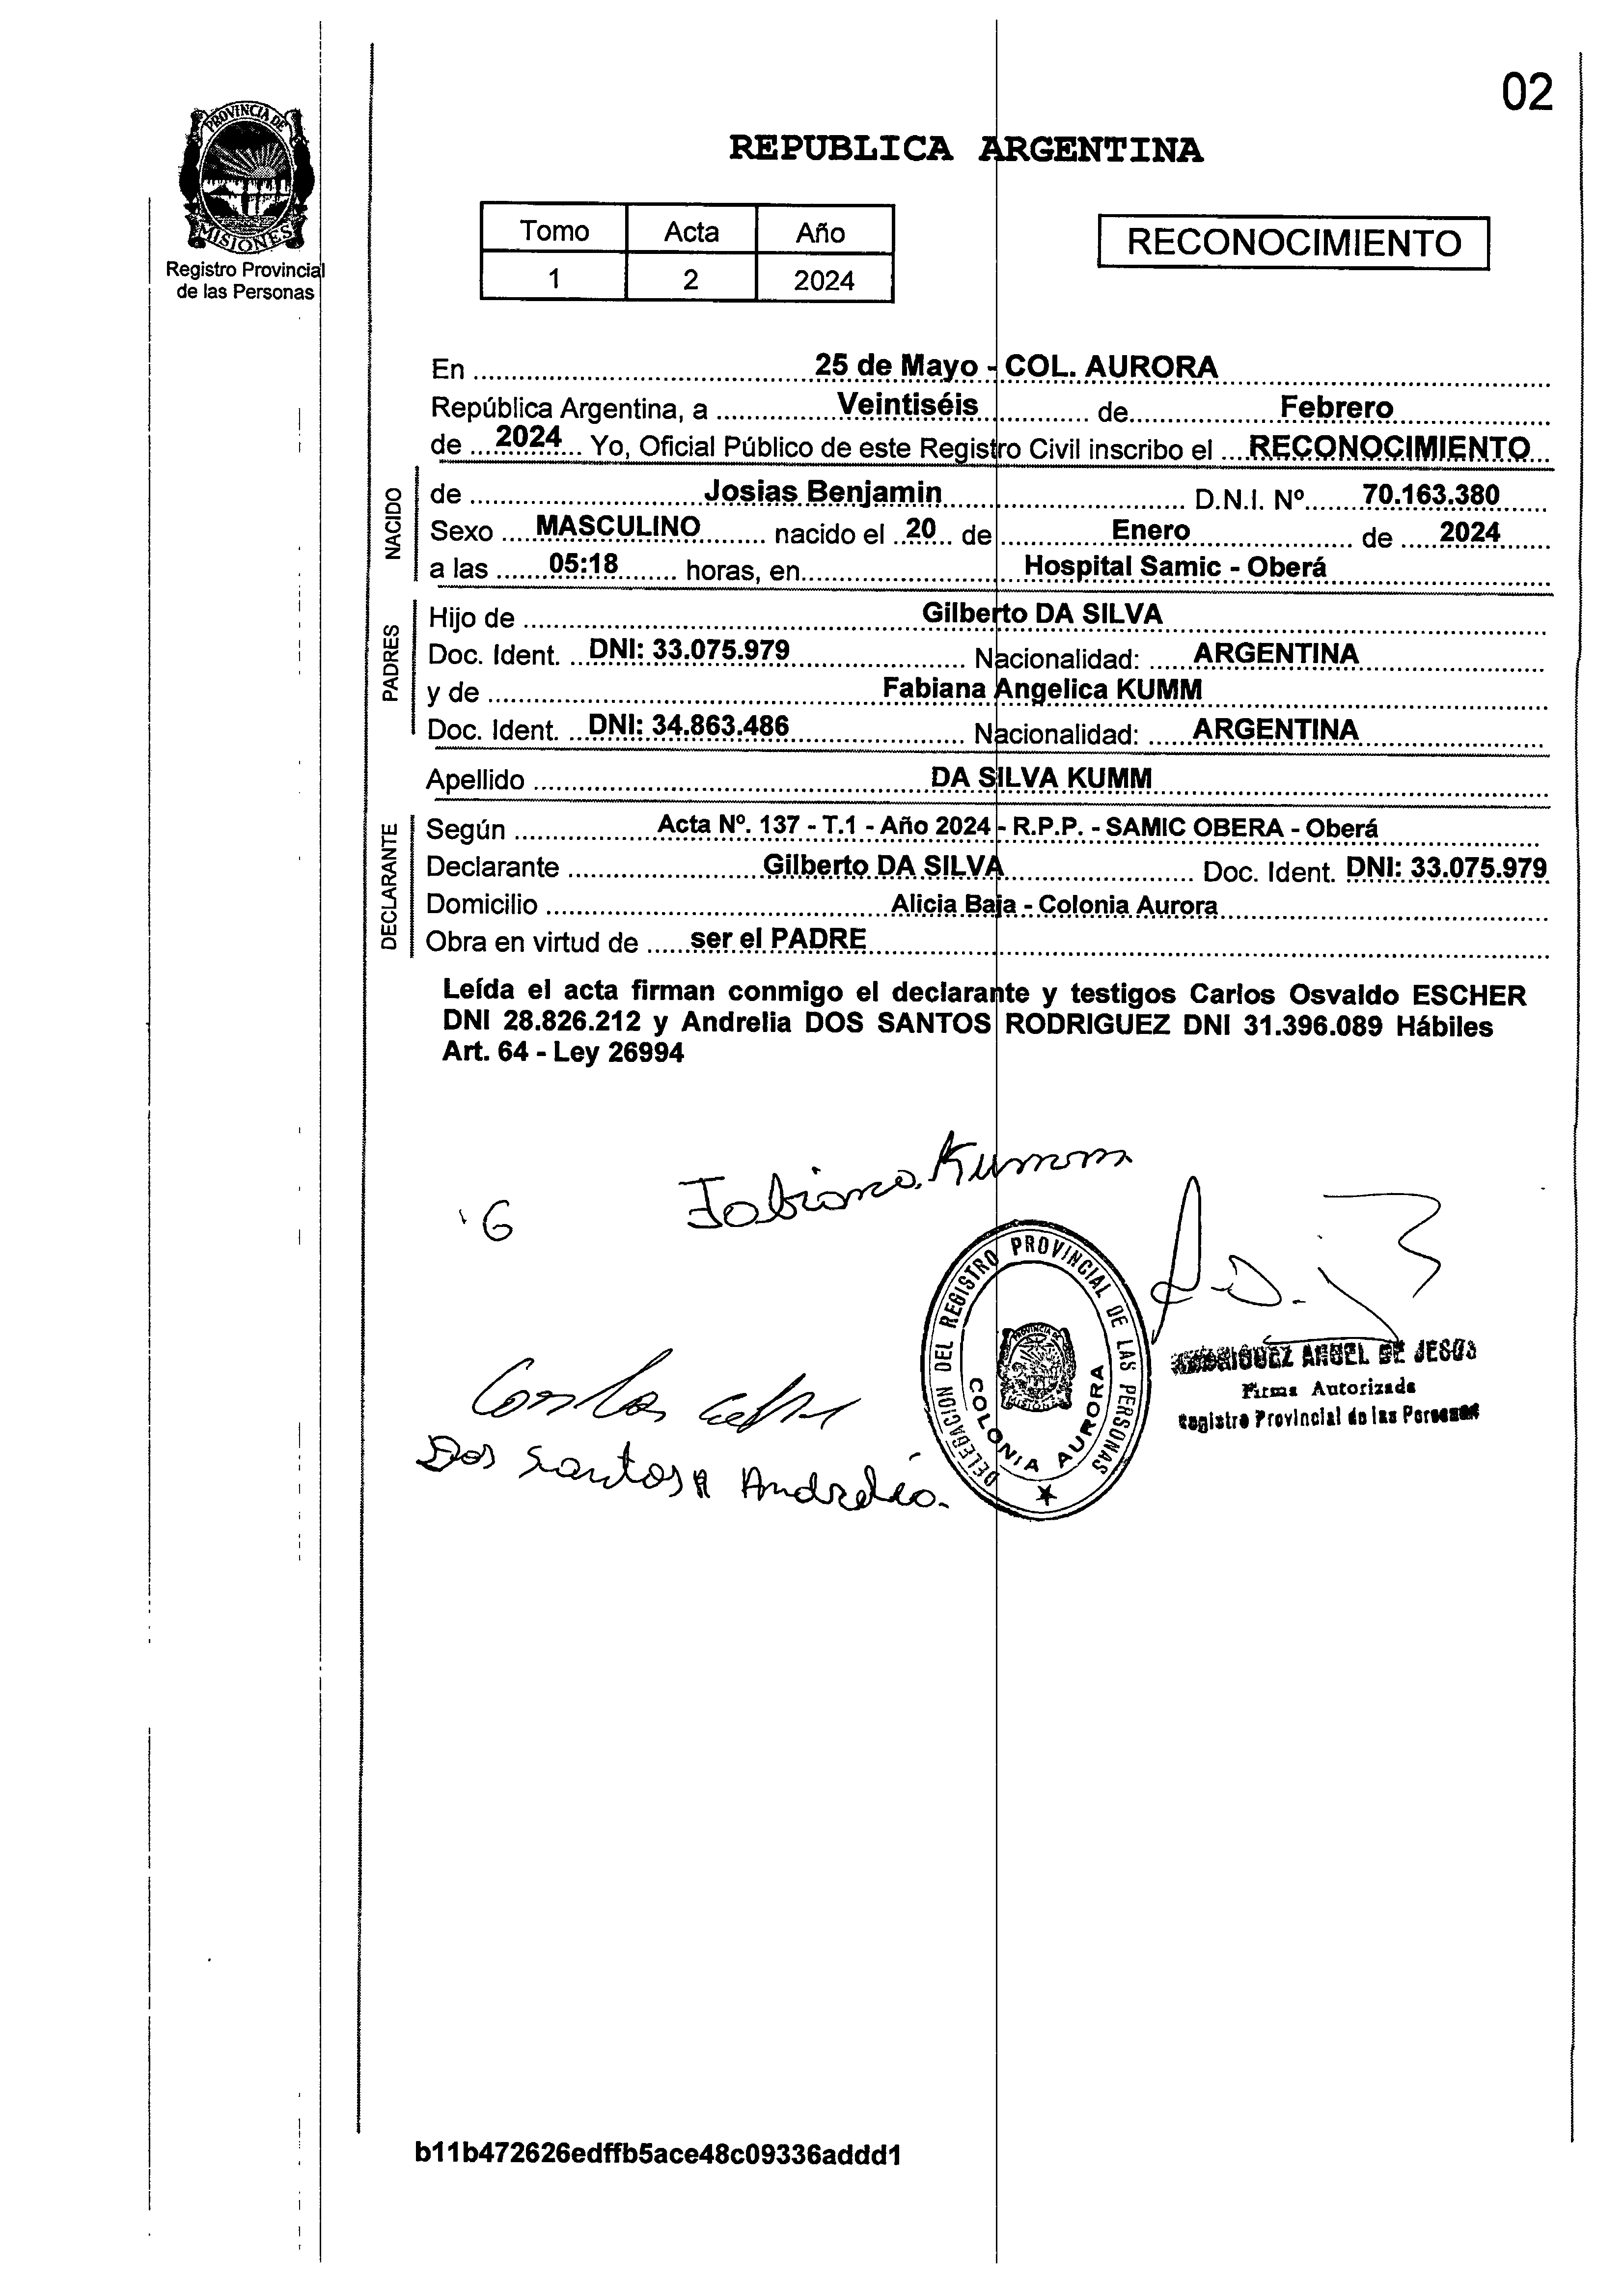 02
PROVINCIA DE
MISIONES
Registro Provincial
de las Personas
REPUBLICA ARGENTINA
Tomo Acta Año
1 2 2024
RECONOCIMIENTO
En 25 de Mayo - COL. AURORA
República Argentina, a Veintiséis de Febrero
de 2024 Yo, Oficial Público de este Registro Civil inscribo el RECONOCIMIENTO
NACIDO
de Josias Benjamin D.N.I. Nº 70.163.380
Sexo MASCULINO nacido el 20 de Enero de 2024
a las 05:18 horas, en Hospital Samic - Oberá
PADRES
Hijo de Gilberto DA SILVA
Doc. Ident. DNI: 33.075.979 Nacionalidad: ARGENTINA
y de Fabiana Angelica KUMM
Doc. Ident. DNI: 34.863.486 Nacionalidad: ARGENTINA
Apellido DA SILVA KUMM
DECLARANTE
Según Acta Nº. 137 - T.1 - Año 2024 - R.P.P. - SAMIC OBERA - Oberá
Declarante Gilberto DA SILVA Doc. Ident. DNI: 33.075.979
Domicilio Alicia Baja - Colonia Aurora
Obra en virtud de ser el PADRE
Leída el acta firman conmigo el declarante y testigos Carlos Osvaldo ESCHER
DNI 28.826.212 y Andrelia DOS SANTOS RODRIGUEZ DNI 31.396.089 Hábiles
Art. 64 - Ley 26994
Fabiana Kumm
G
DELEGACION DEL REGISTRO PROVINCIAL DE LAS PERSONAS
PROVINCIA DE
MISIONES
COLONIA AURORA
ANGEL DE JESUS
Firma Autorizada
Registro Provincial de las Personas
Carlos
Dos Santos R Andrelia.
b11b472626edffb5ace48c09336addd1